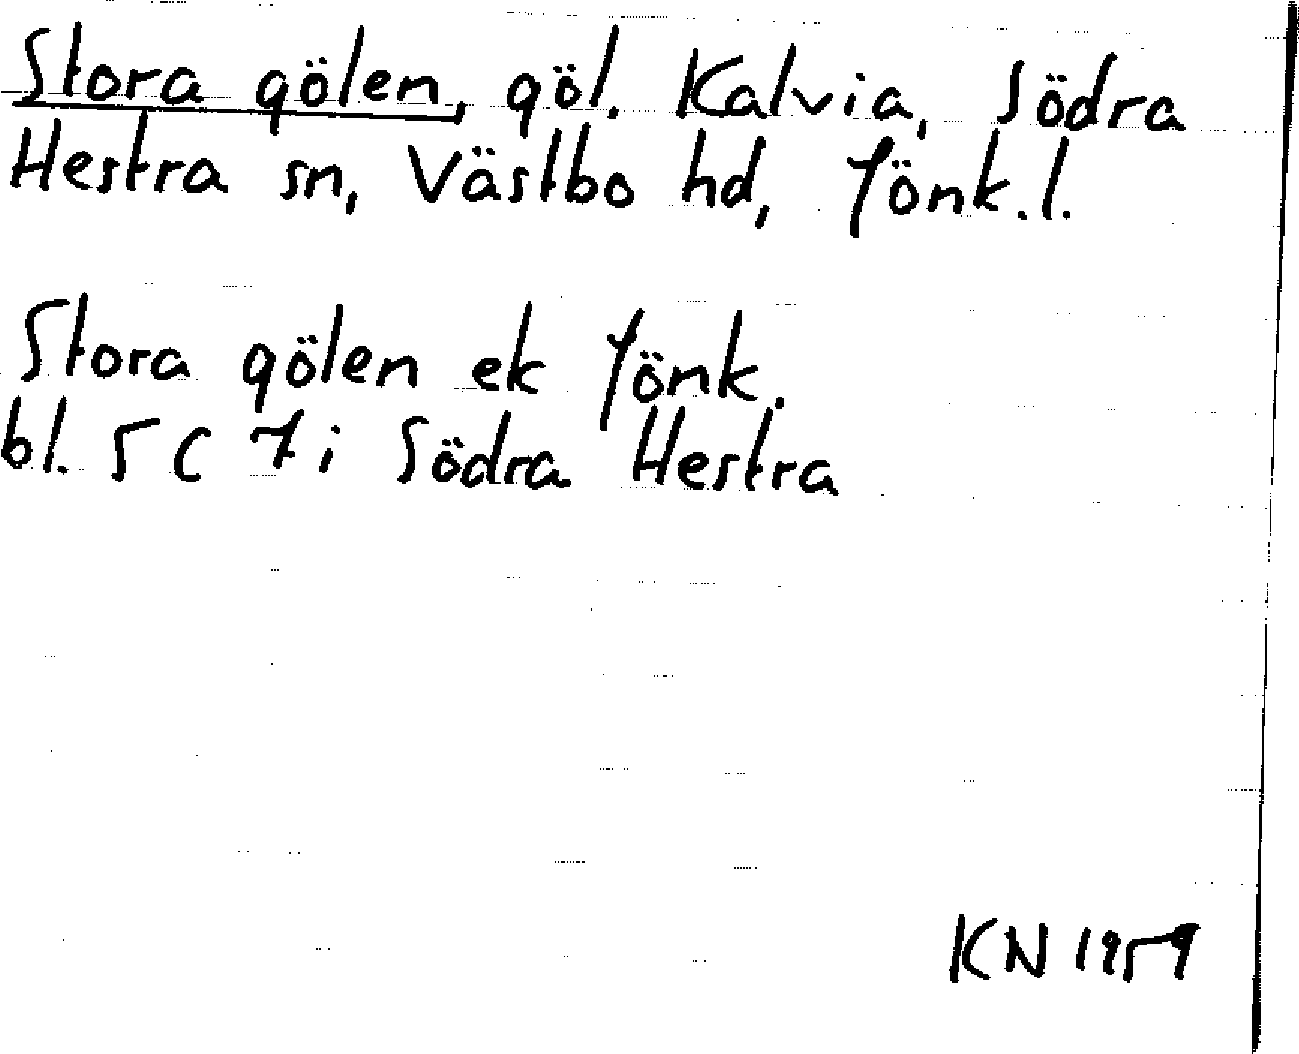 Stora gölen, göl. Kalvia, Södra
Hestra sn, Västbo hd, Jönk.l.
Stora gölen ek Jönk.
bl. 5 C 7 i Södra Hestra
KN 1959